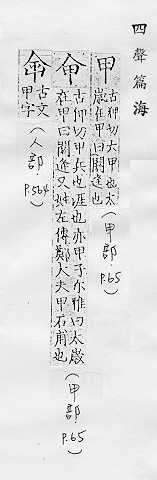 四聲篇海
甲
古狎切大甲也太
歲在甲曰閼逢也
(甲部 P.65)
古仰切甲兵也涯也亦甲子尔雅曰太歲
在甲曰閼逢又姓左傳鄭大夫甲石甫也
(甲部 P.65)
古文
甲字
(人部 P.564)